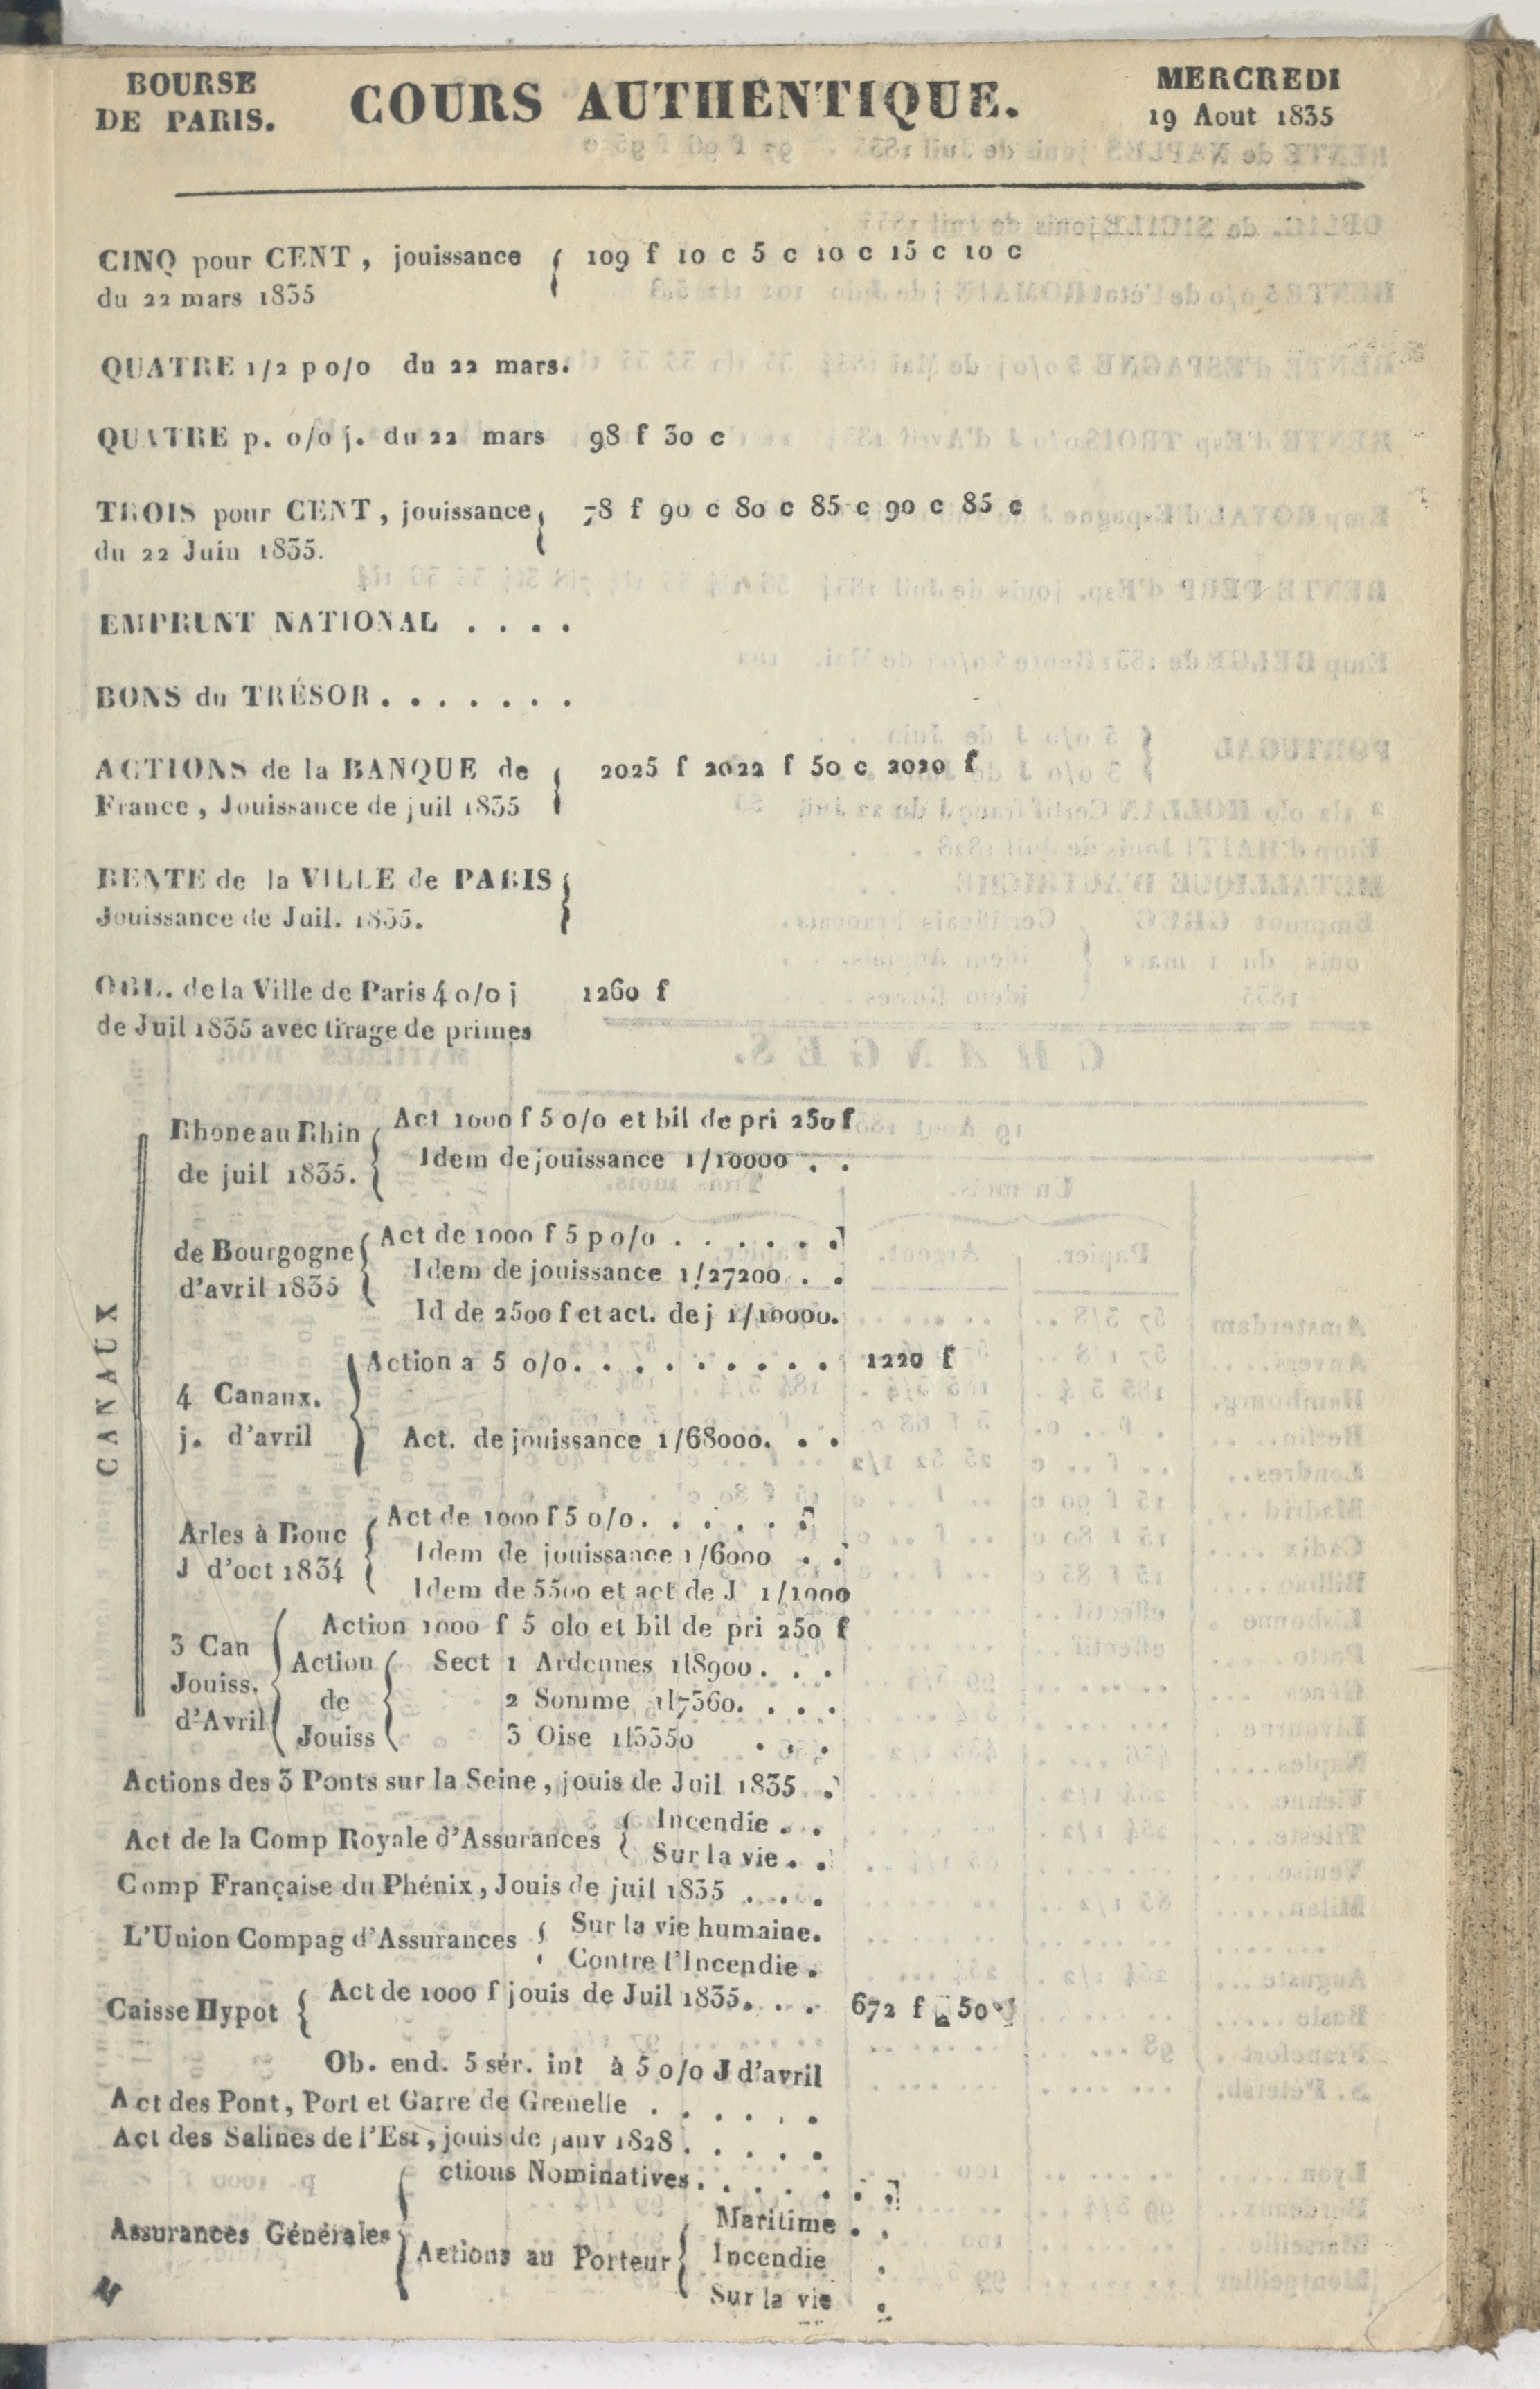 BOURSE
DE PARIS.
COURS AUTHENTIQUE.
MERCREDI
19 Aout 1835
CINQ pour CENT, jouissance { 109 f 10 c 5 c 10 c 15 c 10 c
du 22 mars 1835
QUATRE 1/2 p o/o du 22 mars.
QUATRE p. o/o j. du 22 mars 98 f 30 c
TROIS pour CENT, jouissance { 78 f 90 c 80 c 85 c 90 c 85 c
du 22 Juin 1835.
EMPRUNT NATIONAL . . . .
BONS du TRÉSOR . . . . . . .
ACTIONS de la BANQUE de { 2025 f 2022 f 50 c 2020 f
France, Jouissance de juil 1835
RENTE de la VILLE de PARIS {
Jouissance de Juil. 1835.
OBL. de la Ville de Paris 4 o/o j 1260 f
de Juil 1835 avec tirage de primes
CANAUX
Rhone au Rhin { Act 1000 f 5 o/o et bil de pri 250 f
de juil 1835. Idem de jouissance 1/10000 . .
de Bourgogne { Act de 1000 f 5 p o/o . . . . . .
d'avril 1835 Idem de jouissance 1/27200 . .
Id de 2500 f et act. de j 1/10000.
4 Canaux. { Action a 5 o/o. . . . . . . . . 1220 f
j. d'avril Act. de jouissance 1/68000. . .
Arles à Bouc { Act de 1000 f 5 o/o. . . . . .
J d'oct 1834 Idem de jouissance 1/6000 . .
Idem de 5500 et act de J 1/1000
3 Can { Action 1000 f 5 olo et bil de pri 250 f
Jouiss. Action { Sect 1 Ardennes 1l8900. . .
d'Avril de 2 Somme 1l7360. . . .
Jouiss 3 Oise 1l3350 . . .
Actions des 3 Ponts sur la Seine, jouis de Juil 1835 .
Act de la Comp Royale d'Assurances { Incendie . .
Sur la vie . .
Comp Française du Phénix, Jouis de juil 1835 . . . .
L'Union Compag d'Assurances { Sur la vie humaine.
Contre l'Incendie .
Caisse Hypot { Act de 1000 f jouis de Juil 1835. . . . 672 f 50
Ob. end. 5 sér. int à 5 o/o J d'avril
Act des Pont, Port et Garre de Grenelle . . . . . .
Act des Salines de l'Est, jouis de janv 1828 . . . . .
Assurances Générales { ctions Nominatives . . . . . . .
Actions au Porteur { Maritime . .
Incendie .
Sur la vie .